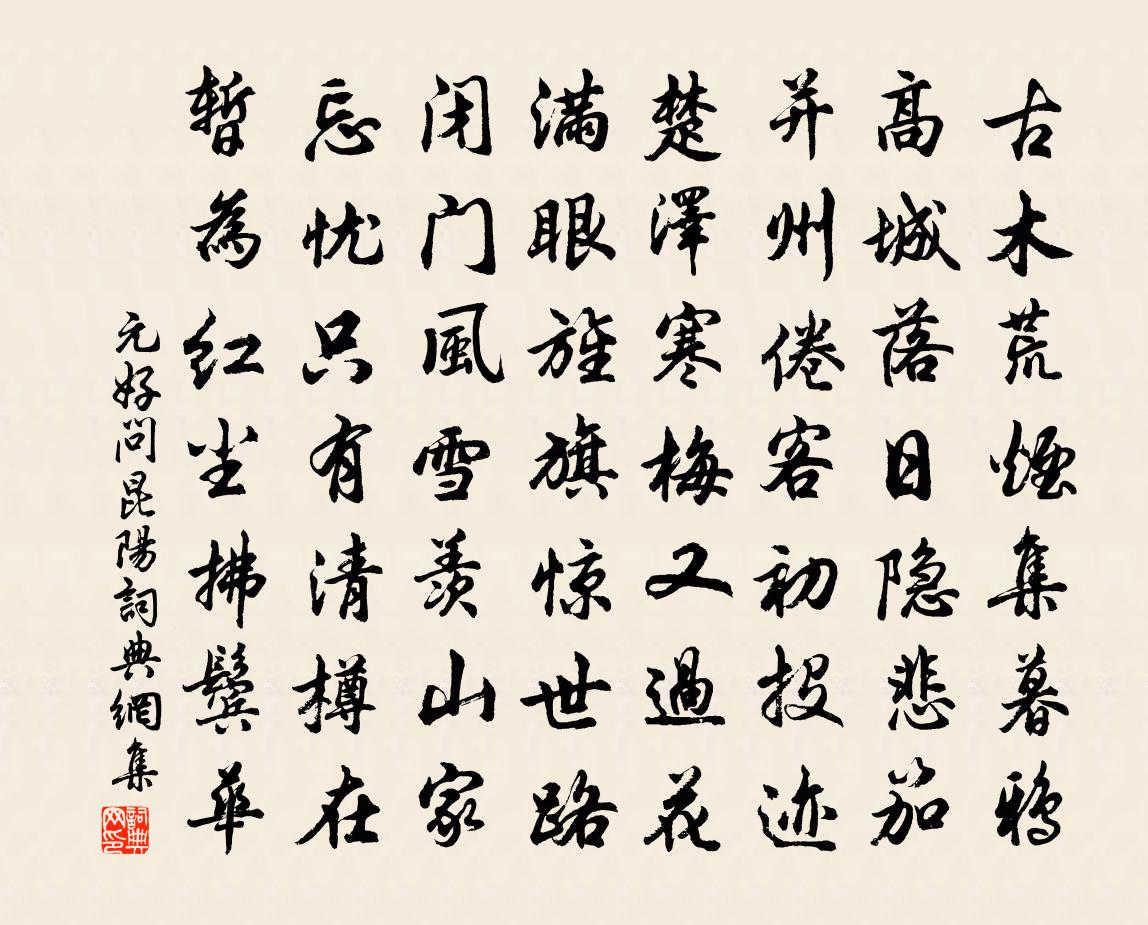 古木荒煙集暮鸦
高城落日隐悲笳
并州倦客初投迹
楚澤寒梅又過花
满眼旌旗惊世路
闭门風雪羡山家
忘忧只有清樽在
暫為红尘拂鬓華
元好問昆陽詞典網集
詞典网印